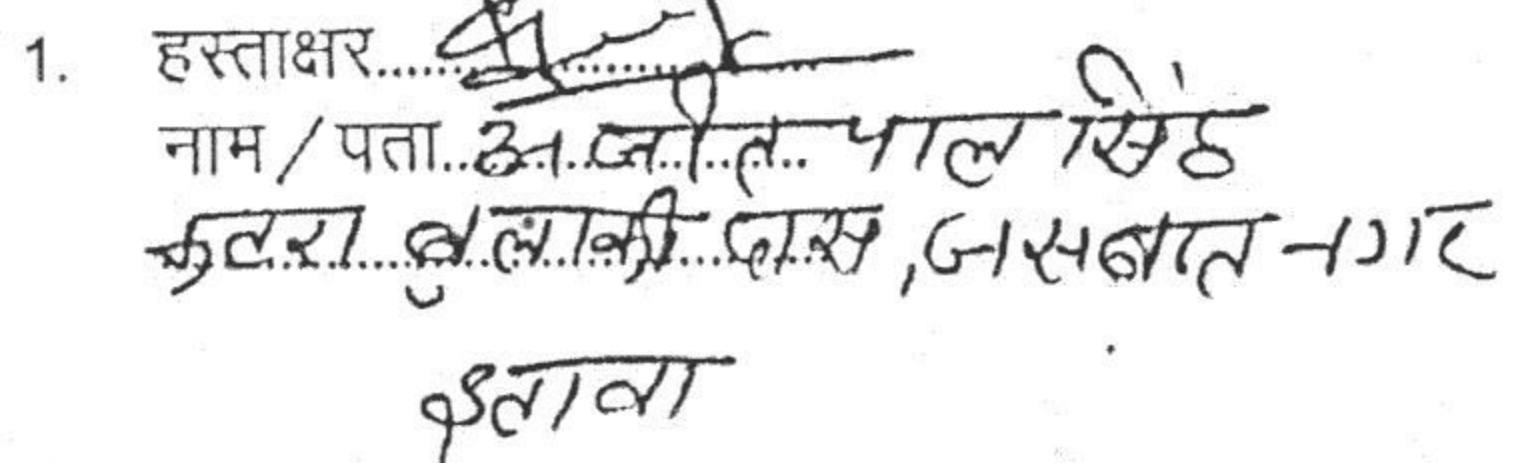 1. हस्ताक्षर..................
नाम / पता अजीत पाल सिंह
कटरा बुलाकी दास, जसवन्त नगर
इटावा